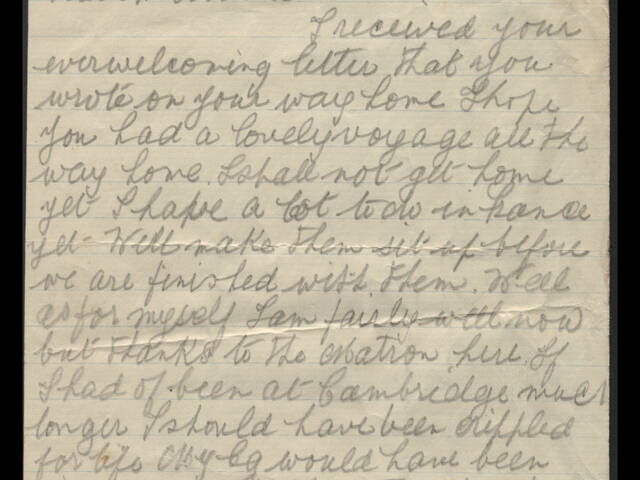 I received your
everwelcoming letter that you
wrote on your way home I hope
you had a lovely voyage all the
way home. I shall not get home
yet I have a lot to do in France
yet Well make them sit up before
we are finished with them. Well
as for myself I am fairly well now
but thanks to the Matron here. If
I had of been at Cambridge much
longer I should have been crippled
for life My leg would have been